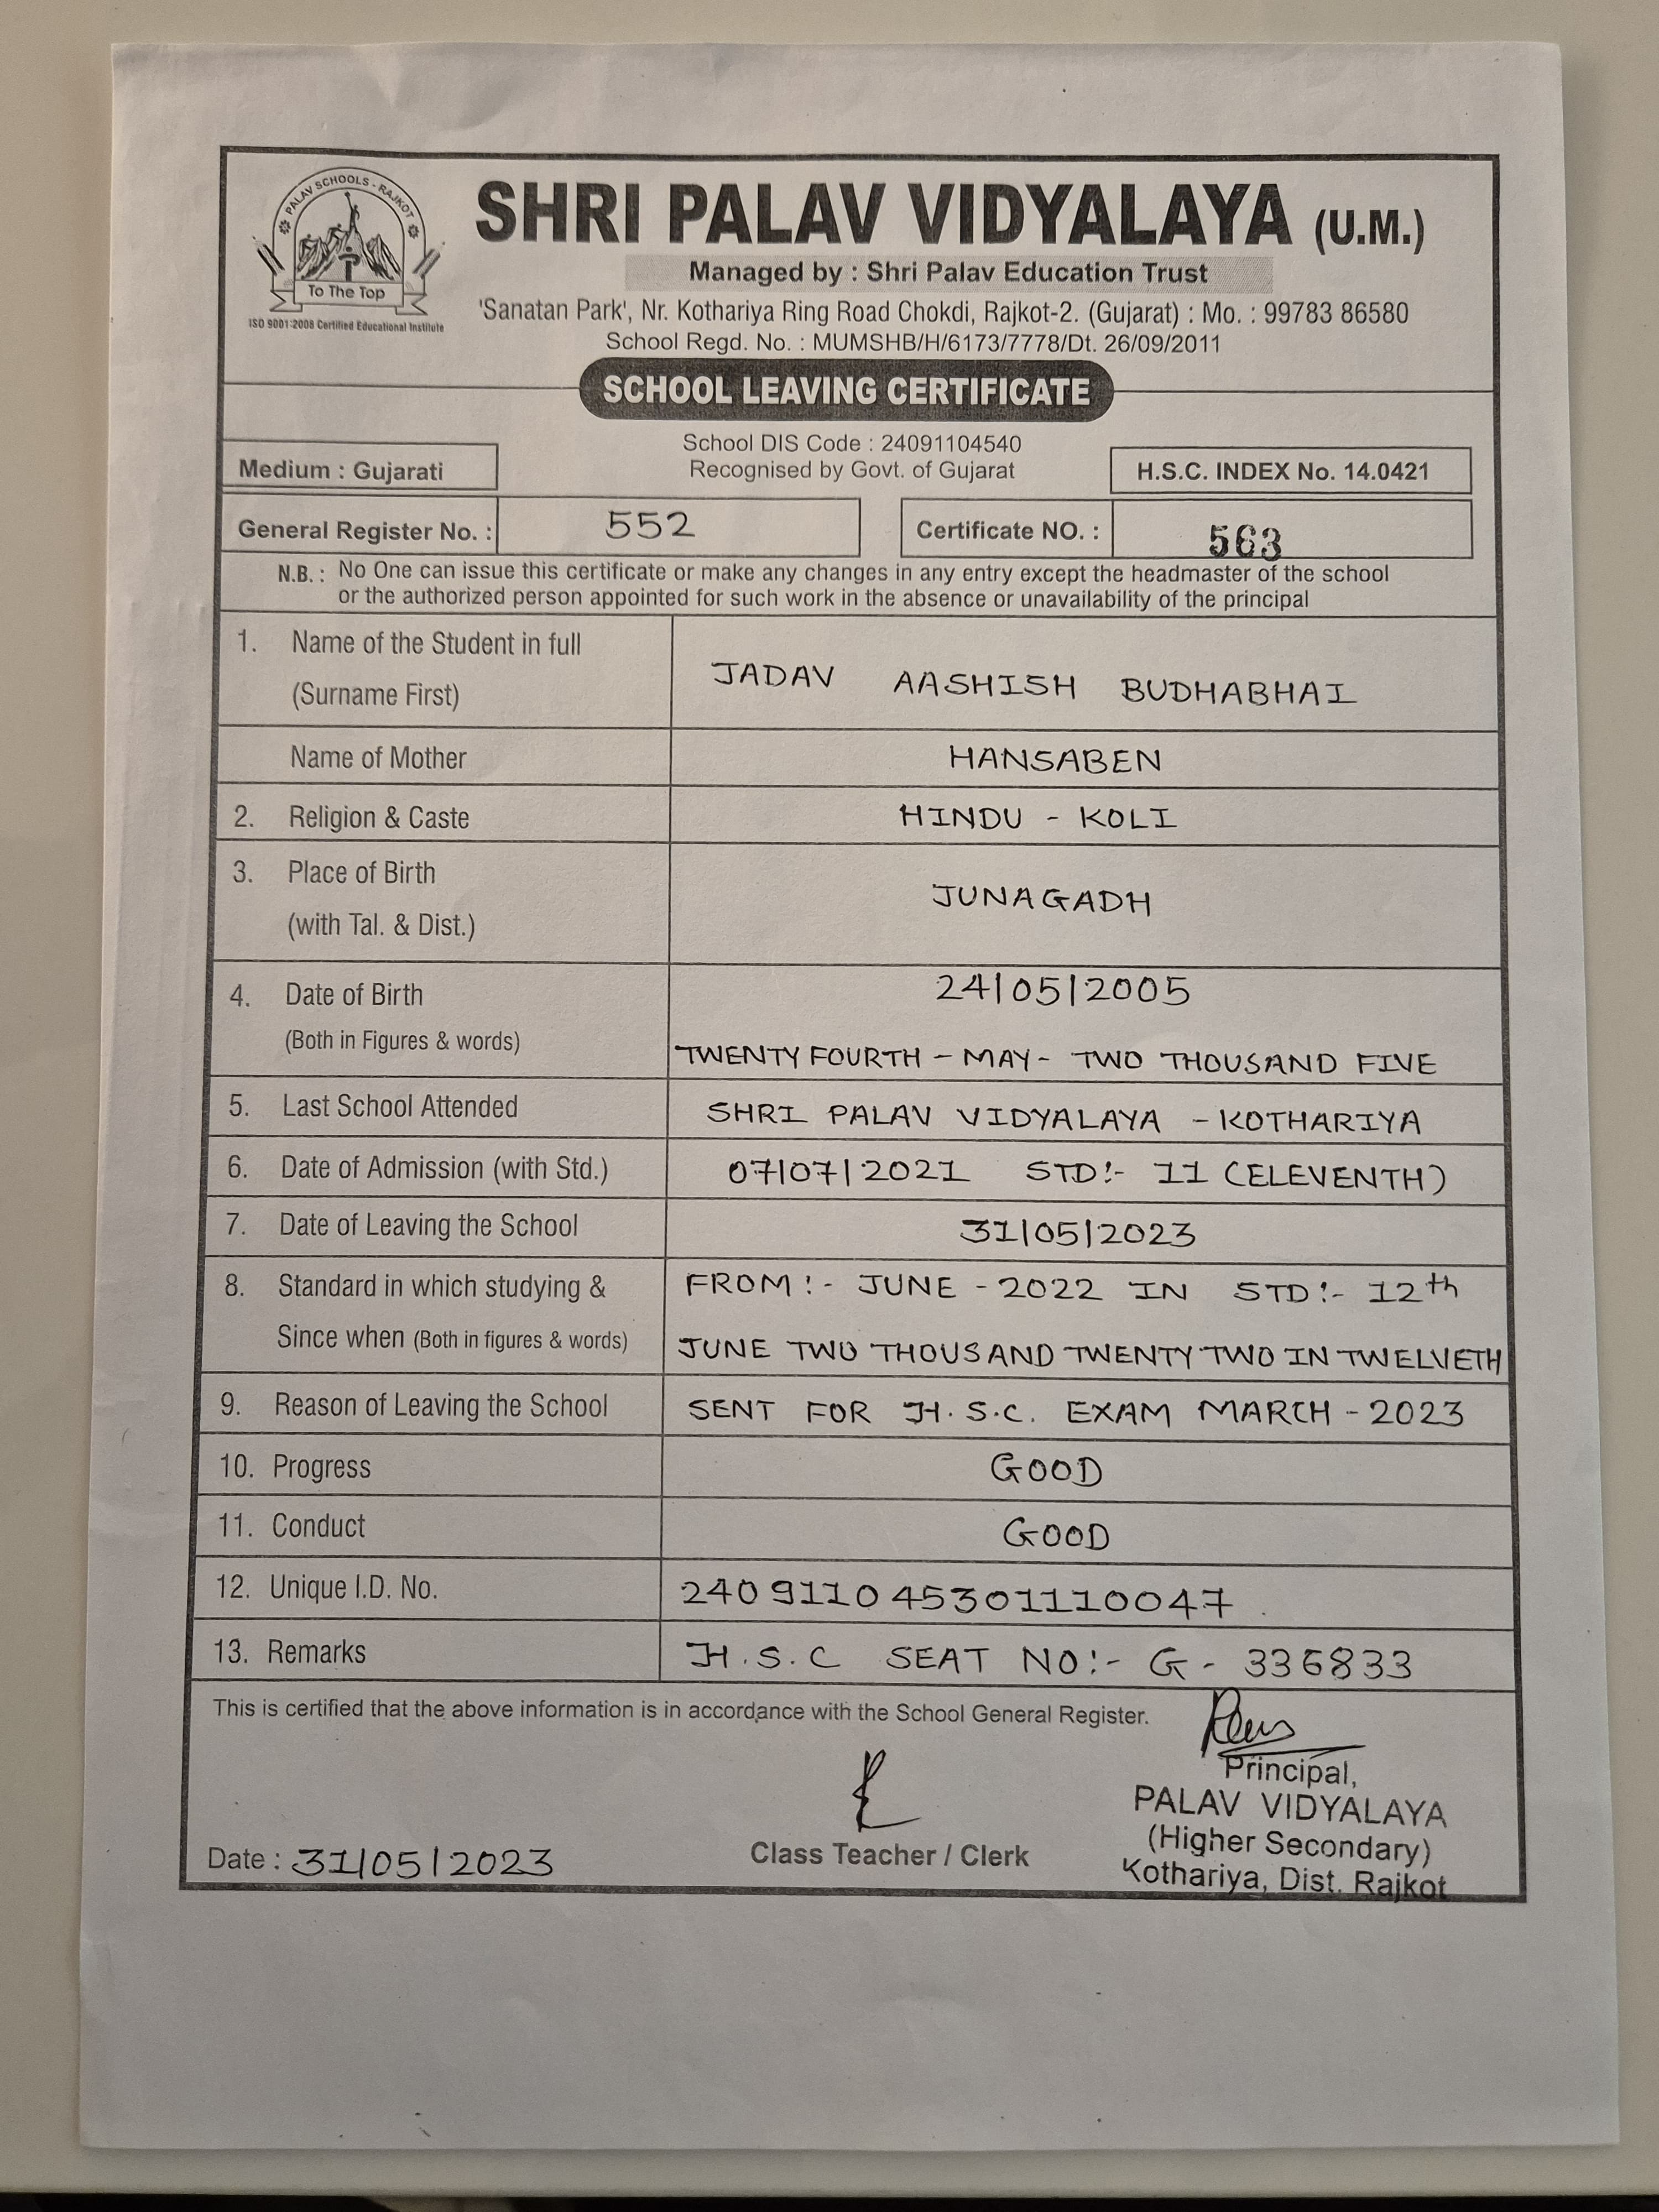 PALAV SCHOOLS - RAJKOT
To The Top
ISO 9001:2008 Certified Educational Institute
SHRI PALAV VIDYALAYA (U.M.)
Managed by : Shri Palav Education Trust
'Sanatan Park', Nr. Kothariya Ring Road Chokdi, Rajkot-2. (Gujarat) : Mo. : 99783 86580
School Regd. No. : MUMSHB/H/6173/7778/Dt. 26/09/2011
SCHOOL LEAVING CERTIFICATE
School DIS Code : 24091104540
Medium : Gujarati
Recognised by Govt. of Gujarat
H.S.C. INDEX No. 14.0421
General Register No. : 552
Certificate NO. : 563
N.B. : No One can issue this certificate or make any changes in any entry except the headmaster of the school
or the authorized person appointed for such work in the absence or unavailability of the principal
1. Name of the Student in full
(Surname First)
JADAV AASHISH BUDHABHAI
Name of Mother HANSABEN
2. Religion & Caste HINDU - KOLI
3. Place of Birth
(with Tal. & Dist.)
JUNAGADH
4. Date of Birth 24/05/2005
(Both in Figures & words) TWENTY FOURTH - MAY - TWO THOUSAND FIVE
5. Last School Attended SHRI PALAV VIDYALAYA - KOTHARIYA
6. Date of Admission (with Std.) 07/07/2021 STD:- 11 (ELEVENTH)
7. Date of Leaving the School 31/05/2023
8. Standard in which studying & FROM:- JUNE - 2022 IN STD:- 12th
Since when (Both in figures & words) JUNE TWO THOUSAND TWENTY TWO IN TWELVETH
9. Reason of Leaving the School SENT FOR H.S.C. EXAM MARCH - 2023
10. Progress GOOD
11. Conduct GOOD
12. Unique I.D. No. 240911045301110047
13. Remarks H.S.C SEAT NO:- G - 336833
This is certified that the above information is in accordance with the School General Register.
Principal,
PALAV VIDYALAYA
(Higher Secondary)
Kothariya, Dist. Rajkot
Class Teacher / Clerk
Date : 31/05/2023